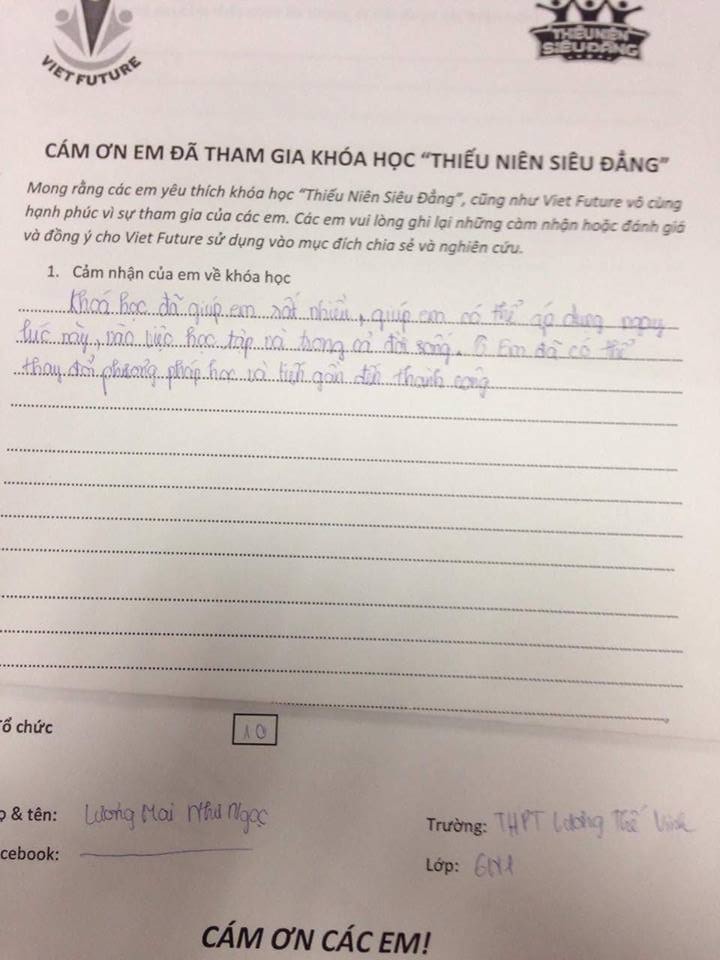 VIET FUTURE
THIẾU NIÊN
SIÊU ĐẲNG
CÁM ƠN EM ĐÃ THAM GIA KHÓA HỌC “THIẾU NIÊN SIÊU ĐẲNG”
Mong rằng các em yêu thích khóa học “Thiếu Niên Siêu Đẳng”, cũng như Viet Future vô cùng
hạnh phúc vì sự tham gia của các em. Các em vui lòng ghi lại những cảm nhận hoặc đánh giá
và đồng ý cho Viet Future sử dụng vào mục đích chia sẻ và nghiên cứu.
1. Cảm nhận của em về khóa học
Khoá học đã giúp em rất nhiều, giúp em có thể áp dụng ngay
lúc này, vào việc học tập và trong cả đời sống. Em đã có thể
thay đổi phương pháp học và tiến gần đến thành công
ổ chức
10
& tên: Lương Mai Như Ngọc
Trường: THPT Lương Thế Vinh
cebook:
Lớp: 6N1
CÁM ƠN CÁC EM!